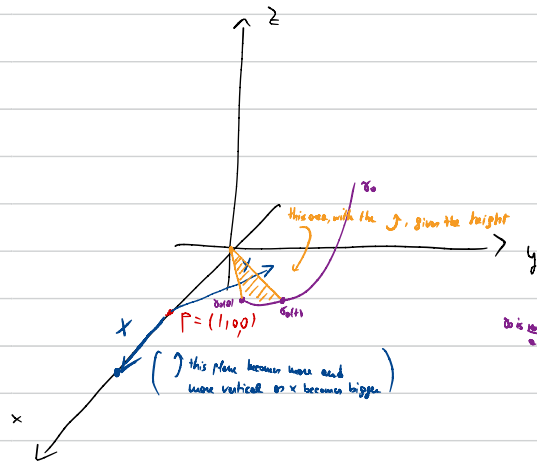 z
γ₀
this area, with the ↺, gives the height
y
γ₀(0)
γ₀(t)
γ₀ is
p = (1,0,0)
X
this plane becomes more and
more vertical as x becomes bigger
x